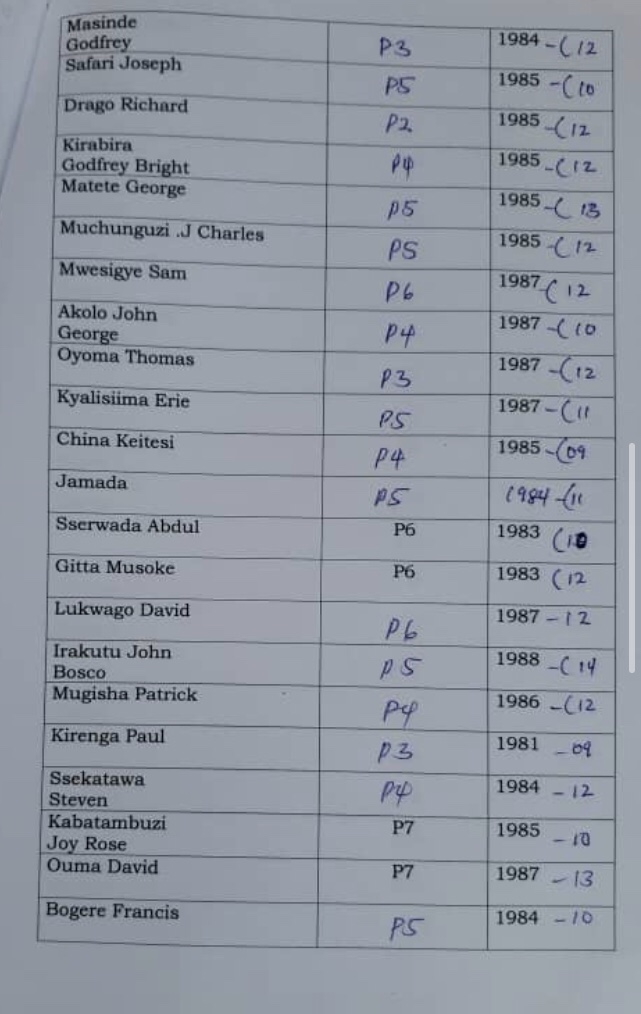 Masinde
Godfrey P3 1984 -( 12
Safari Joseph P5 1985 -( 10
Drago Richard P2 1985 -( 12
Kirabira
Godfrey Bright P4 1985 -( 12
Matete George P5 1985 -( 13
Muchunguzi .J Charles P5 1985 -( 12
Mwesigye Sam P6 1987 -( 12
Akolo John
George P4 1987 -( 10
Oyoma Thomas P3 1987 -( 12
Kyalisiima Erie P5 1987 -( 11
China Keitesi P4 1985 -( 09
Jamada P5 1984 -( 11
Sserwada Abdul P6 1983 (10
Gitta Musoke P6 1983 ( 12
Lukwago David P6 1987 - 12
Irakutu John
Bosco P5 1988 -( 14
Mugisha Patrick P4 1986 -( 12
Kirenga Paul P3 1981 - 09
Ssekatawa
Steven P4 1984 - 12
Kabatambuzi
Joy Rose P7 1985 - 10
Ouma David P7 1987 - 13
Bogere Francis P5 1984 - 10